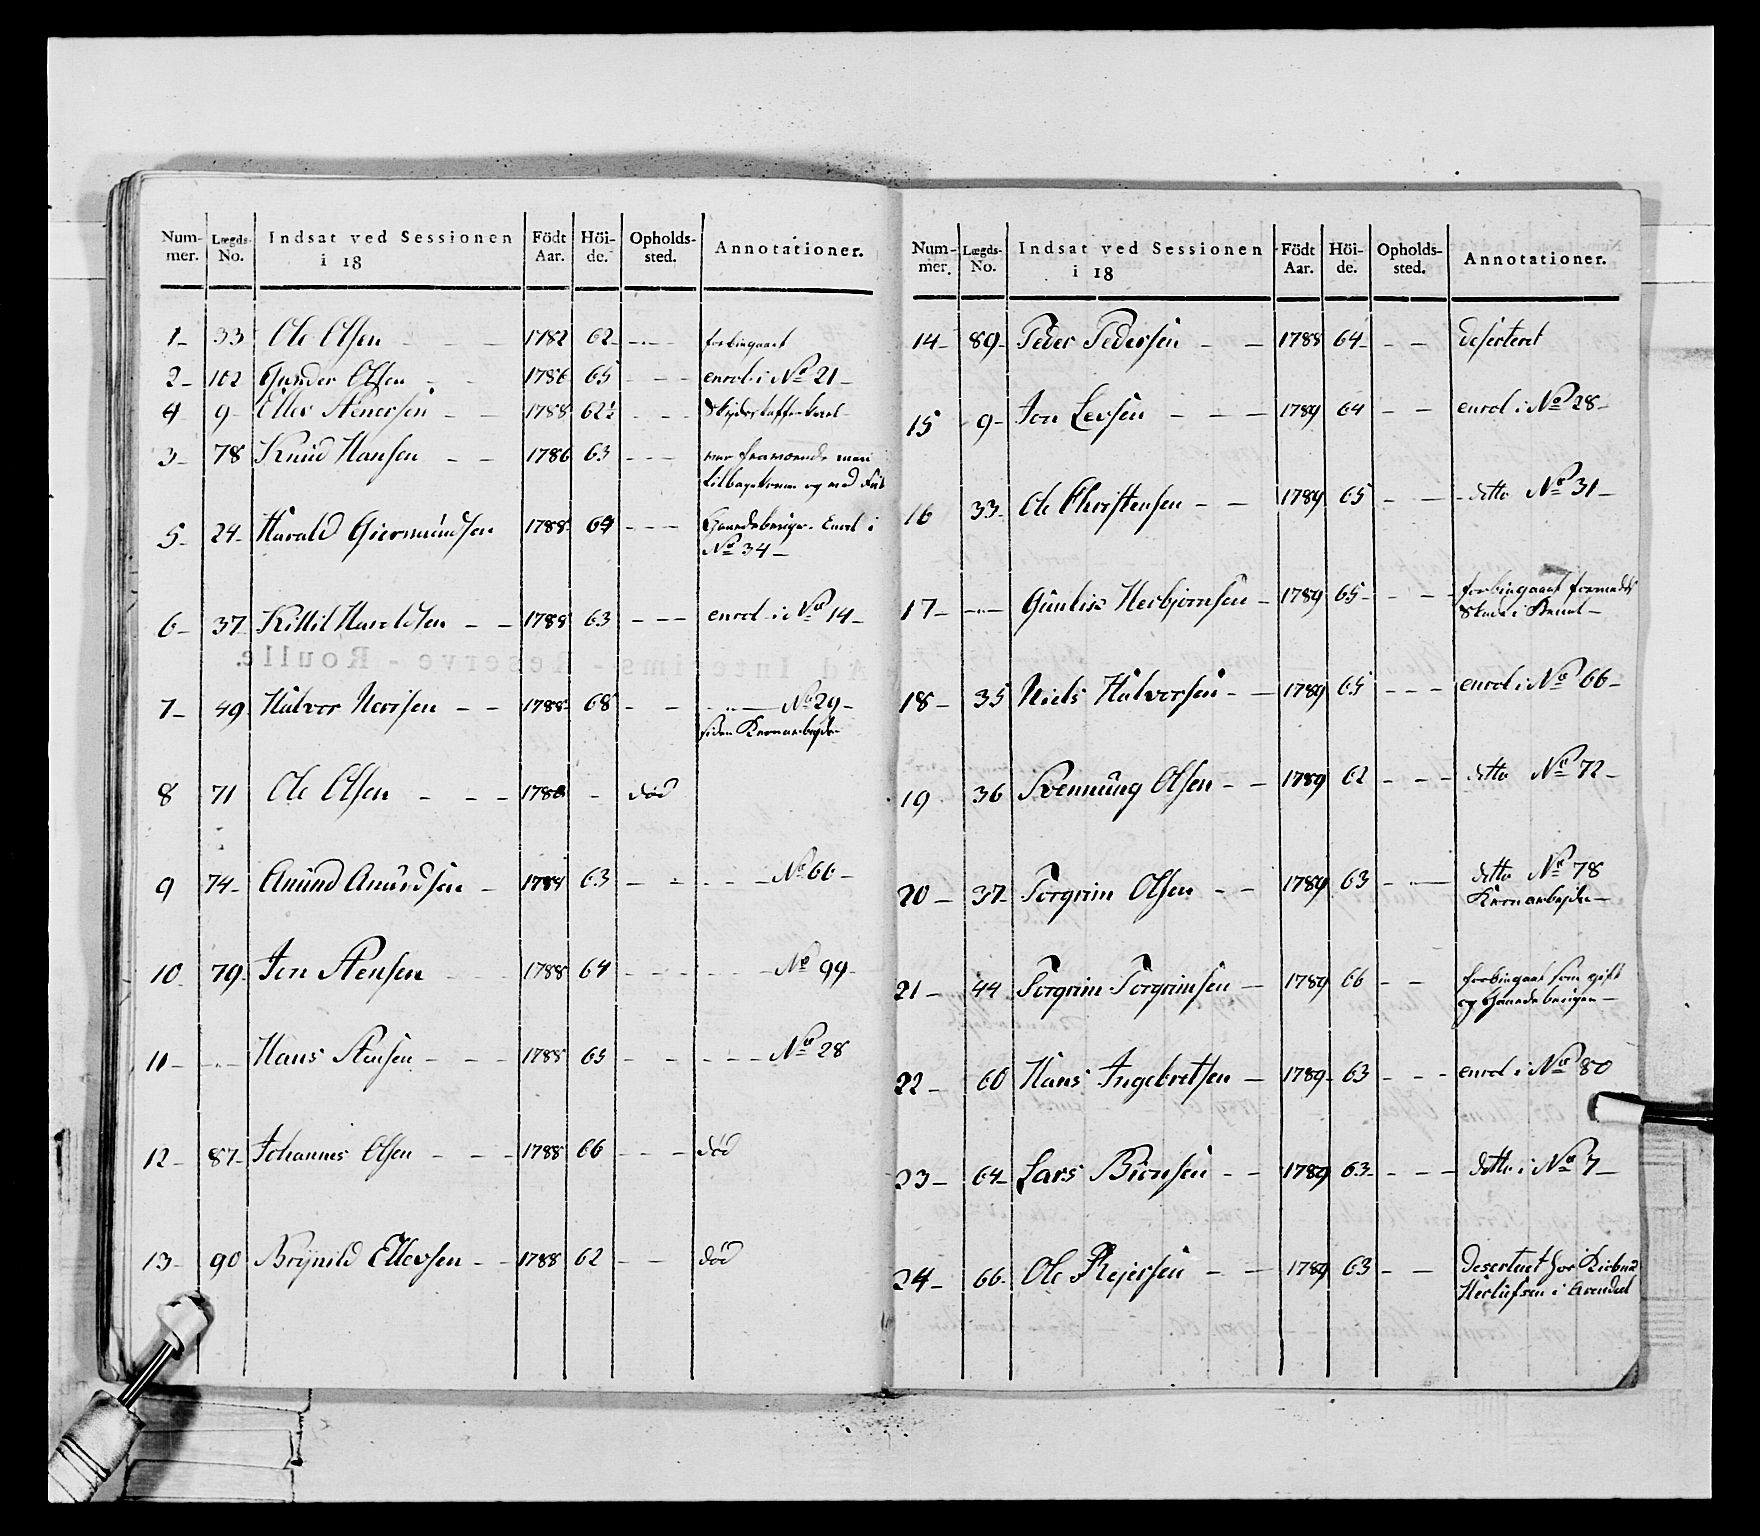 Num- Lægds- Indsat ved Sessionen Födt Höi- Opholds- Annotationer.
mer. No. i 18 Aar. de. sted.
1 - 33 Ole Olsen - - - 1782 62 - - - forbigaaet
2 - 102 Gunder Olsen - - 1786 65 - - - enrol. i No 21 -
4 - 9 - Ellev Stenersen - - 1788 62½ - - -
3 - 78 Knud Hansen - - 1786 63 - - - var fraværende men
tilbagekommen og med
5 - 24 - Harald Giermundsen 1788 64 - - - Gaardebruger. Enrol i
No 34 -
6 - 37 Kittil Haroldsen - - 1788 63 - - - enrol - i No 14 -
7 - 49 Halvor Norsen - - 1788 68 - - - - No 29 -
siden Kornarbejder
8 71 Ole Olsen - - - 1788 - død
9 74 - Anund Anundsen - 1784 63 - - - - No 66 -
10 79 - Jon Stensen - - - 1788 64 - - - - - - No 99 -
11 - - - Hans Stensen - - - 1788 65 - - - - - No 28
12 - 87 - Johannes Olsen - - - 1788 66 - - - død
13 - 90 Brynild Ellevsen - - 1788 62 - - død
Num- Lægds- Indsat ved Sessionen Födt Höi- Opholds- Annotationer.
mer. No. i 18 Aar. de. sted.
14 - 89 - Peder Pedersen - - 1788 64 - - deserteret
15 9 - Jon Levsen - - - 1789 64 - - enrol i No 28 -
16 33 - Ole Christensen - - 1789 65 - - - ditto No 31 -
17 - - - Gunlix Herbjornsen - 1789 65 - - - forbigaaet formedelst
Skade i
18 - 35 Niels Halvorsen - - 1789 65 - - - enrol i No 66 -
19 36 Svennung Olsen - - 1789 62 - - - ditto No 72 -
20 - 37 - Torgrim Olsen - - 1789 63 - - ditto No 78
Kornarbejder -
21 - 44 Torgrim Torgrimsen - 1789 66 - - forbigaaet som gift
og Gaardebruger -
22 - 60 Hans Ingebretsen - 1789 - 63 - - - enrol i No 80
23 - 64 - Lars Biønsen - - 1789 63 - - - - ditto i No 7 -
24 - 66 - Ole Rejersen - - 1789 63 - - Deserteret for
Herlufsen i Arendal